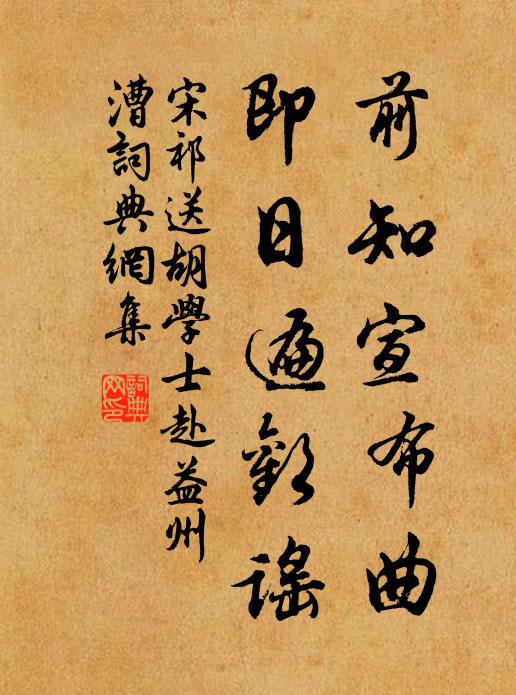 前知宣布曲
即日遍歡謠
宋祁送胡學士赴益州
漕詞典網集
詞典
网印